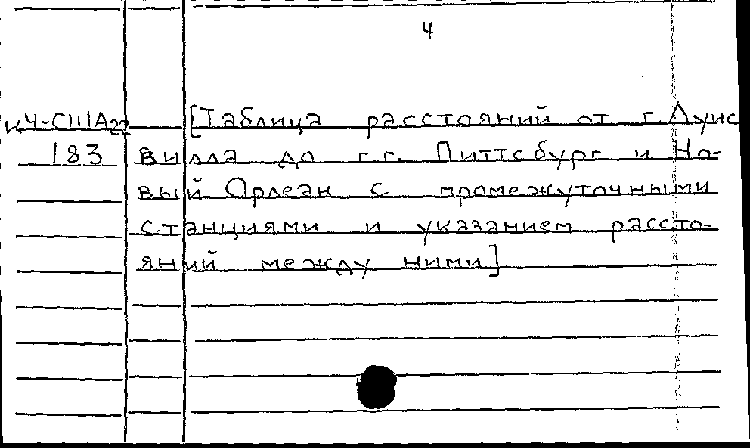 4
К4-США22 [Таблица расстояний от г. Луис
183 вилла до г.г. Питтсбург и Но-
вый Орлеан с промежуточными
станциями и указанием рассто-
яний между ними]